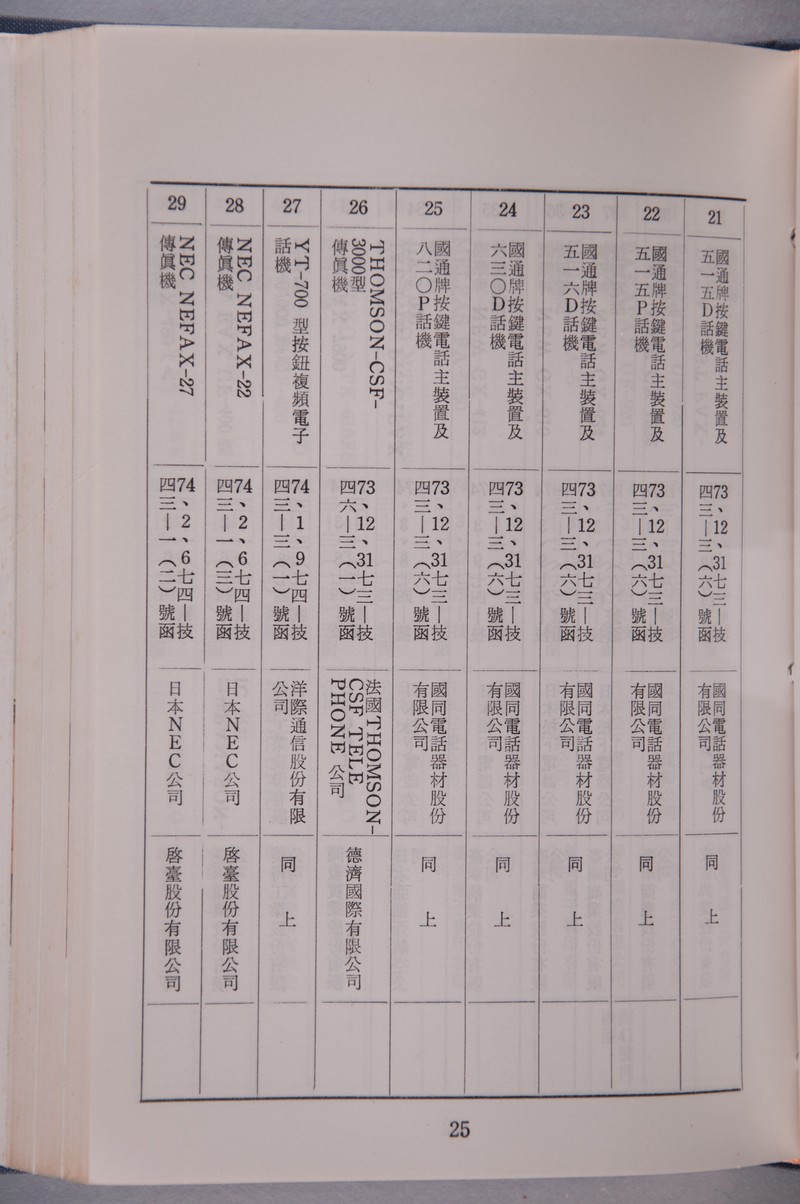 21
國通牌按鍵電話主裝置及
五一五D話機
73、12、31七三—技
四三—三(六)號函
國同電話器材股份
有限公司
同上
22
國通牌按鍵電話主裝置及
五一五P話機
73、12、31七三—技
四三—三(六)號函
國同電話器材股份
有限公司
同上
23
國通牌按鍵電話主裝置及
五一六D話機
73、12、31七三—技
四三—三(六)號函
國同電話器材股份
有限公司
同上
24
國通牌按鍵電話主裝置及
六三〇D話機
73、12、31七三—技
四三—三(六)號函
國同電話器材股份
有限公司
同上
25
國通牌按鍵電話主裝置及
八二〇P話機
73、12、31七三—技
四三—三(六)號函
國同電話器材股份
有限公司
同上
26
THOMSON-CSF-
3000型
傳眞機
73、12、31七三—技
四六—三(一)號函
法國THOMSON-
CSF TELE
PHONE 公司
德濟國際有限公司
27
YT-700 型按鈕複頻電子
話機
74、1、9七四—技
四三—三(一)號函
洋際通信股份有限
公司
同上
28
NEC NEFAX-22
傳眞機
74、2、6七四—技
四三—一(三)號函
日本NEC公司
啓臺股份有限公司
29
NEC NEFAX-27
傳眞機
74、2、6七四—技
四三—一(二)號函
日本NEC公司
啓臺股份有限公司
25